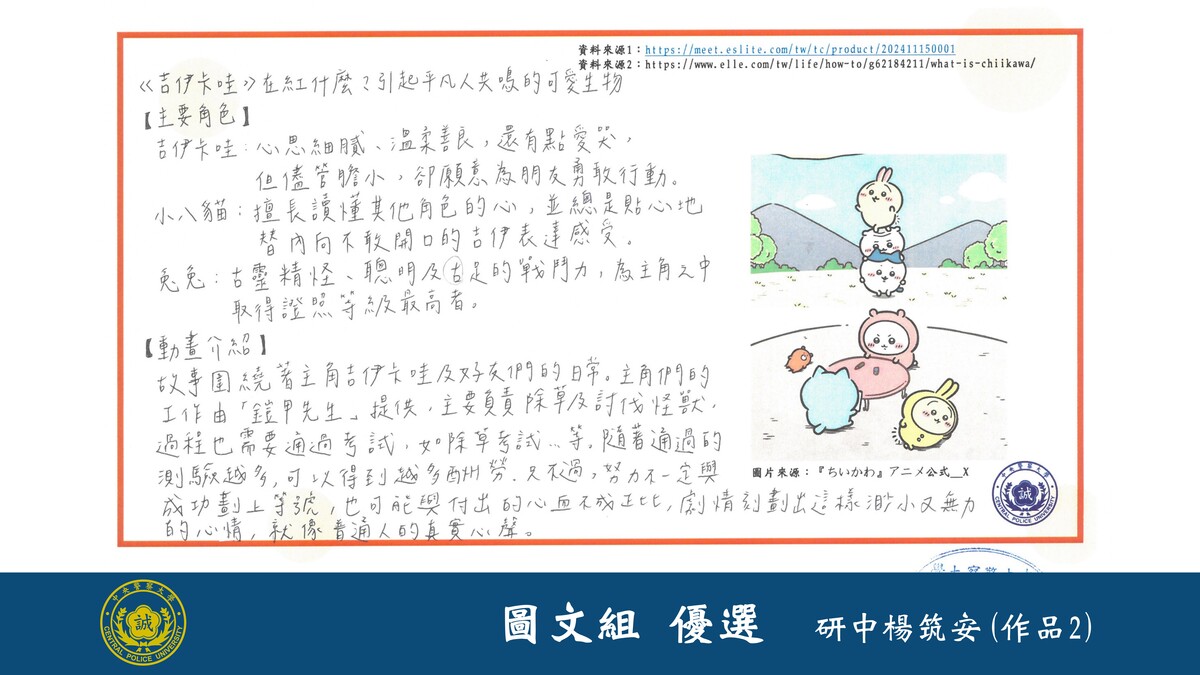 資料來源1：https://meet.eslite.com/tw/tc/product/202411150001
資料來源2：https://www.elle.com/tw/life/how-to/g62184211/what-is-chiikawa/
《吉伊卡哇》在紅什麼？引起平凡人共鳴的可愛生物
【主要角色】
吉伊卡哇：心思細膩、溫柔善良，還有點愛哭，
但儘管膽小，卻願意為朋友勇敢行動。
小八貓：擅長讀懂其他角色的心，並總是貼心地
替內向不敢開口的吉伊表達感受。
兔兔：古靈精怪、聰明及古足的戰鬥力，為主角之中
取得證照等級最高者。
【動畫介紹】
故事圍繞著主角吉伊卡哇及好友們的日常。主角們的
工作由「鎧甲先生」提供，主要負責除草及討伐怪獸，
過程也需要通過考試，如除草考試…等。隨著通過的
測驗越多，可以得到越多酬勞。只不過，努力不一定與
成功劃上等號，也可能與付出的心血不成正比，劇情刻劃出這樣渺小又無力
的心情，就像普通人的真實心聲。
圖片來源：『ちいかわ』アニメ公式__X
中央警察大學
誠
CENTRAL POLICE UNIVERSITY
中央警察大學
誠
CENTRAL POLICE UNIVERSITY
圖文組 優選
研中楊筑安(作品2)